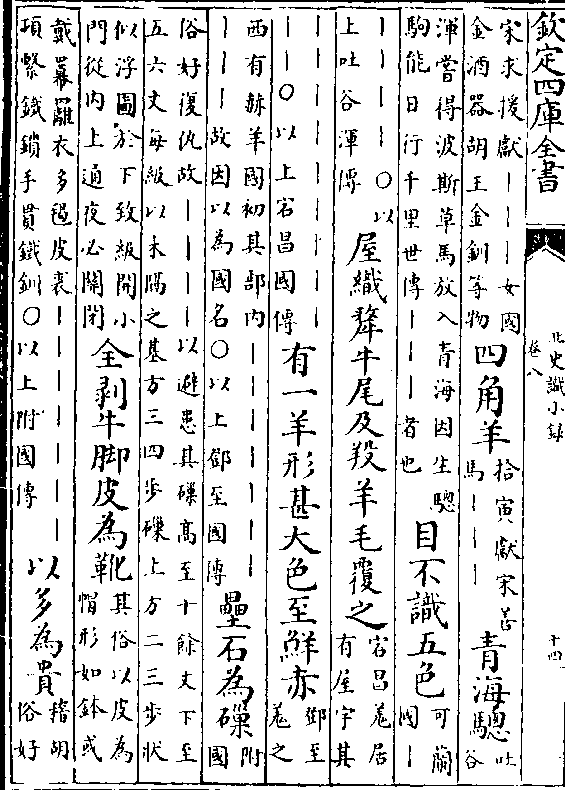 欽定四庫全書
北史識小錄
卷八
十四
宋求援獻｜｜｜女國
金酒器胡王金釧等物
四角羊
拾寅獻宋善
馬｜｜｜
青海驄
吐谷
渾嘗得波斯草馬放入青海因生驄
駒能日行千里世傳｜｜｜者也
目不識五色
可蘭
國｜
｜｜｜｜○以
上吐谷渾傳
屋織犛牛尾及羖羊毛覆之
宕昌羗居
有屋宇其
｜｜｜｜｜｜｜｜｜｜
｜｜○以上宕昌國傳
有一羊形甚大色至鮮赤
鄧至
羗之
西有赫羊國初其部内｜｜｜｜｜｜
｜｜｜故因以為國名○以上鄧至國傳
壘石為磲
附
國
俗好復仇故｜｜｜｜以避患其磲高至十餘丈下至
五六丈每級以木隔之基方三四步磲上方二三步狀
似浮圖於下致級開小
門從内上通夜必關閉
全剥牛脚皮為靴
其俗以皮為
帽形如鉢或
戴羃䍦衣多毼皮裘｜｜｜｜｜｜
項繫鐵鎖手貫鐵釧○以上附國傳
以多為貴
稽胡
俗好